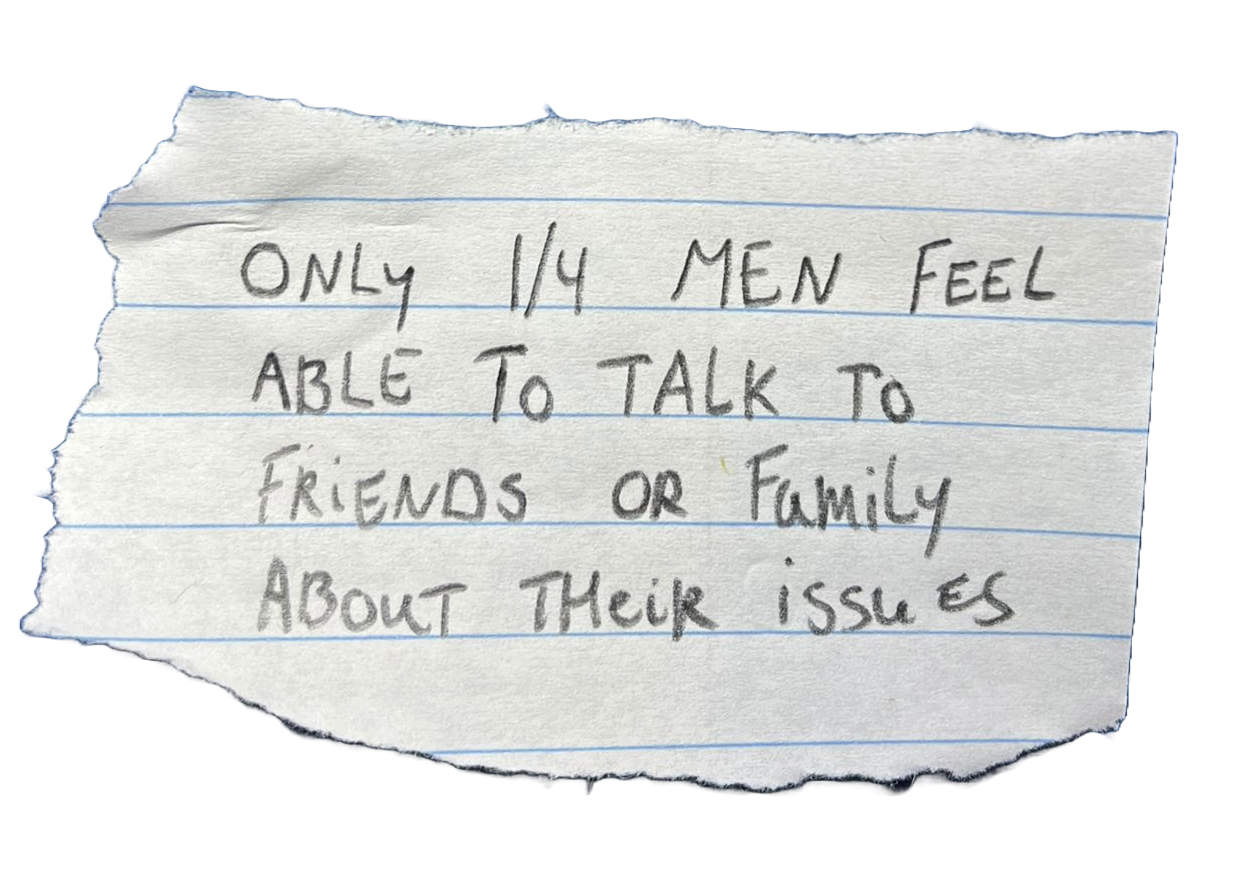 ONLY 1/4 MEN FEEL
ABLE TO TALK TO
FRiENDS OR FamiLy
ABOuT THeiR issuES